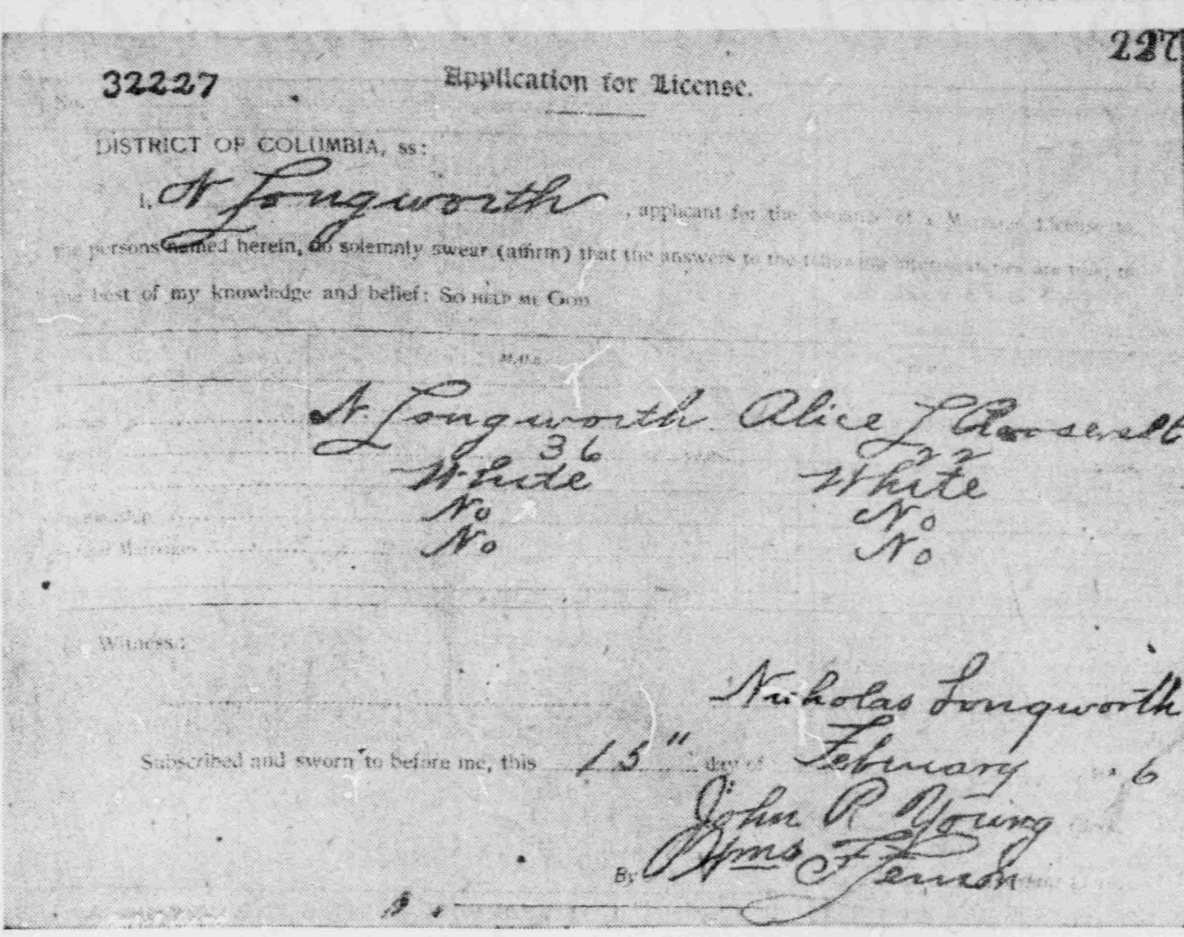 227
32227
Application for License.
DISTRICT OF COLUMBIA, ss:
I, N Longworth, applicant for the issuance of a Marriage License to
the persons named herein, do solemnly swear (affirm) that the answers to the following interrogatories are true, to
the best of my knowledge and belief: SO HELP ME GOD
MALE
N. Longworth. Alice L Roosevelt
36 22
White White
No No
No No
Witness:
Nicholas Longworth
Subscribed and sworn to before me, this 15" day of February 6
John R Young
By